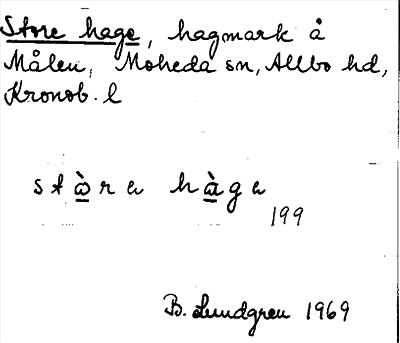 Store hage, hagmark å
Målen, Moheda sn, Allbo hd,
Kronob. l
stὼ̲ra hà̲ga
199
B. Lundgren 1969